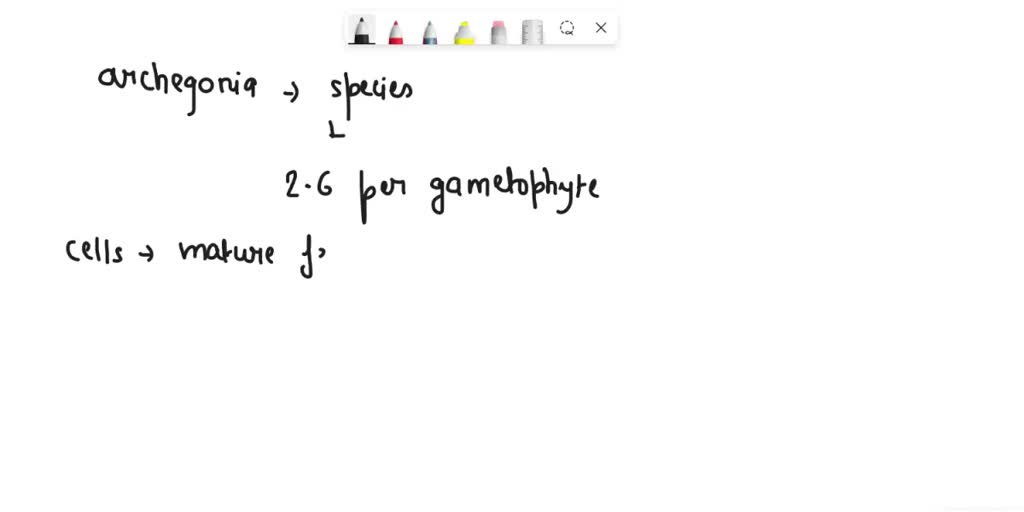 archegonia → species
2.6 per gametophyte
cells → mature